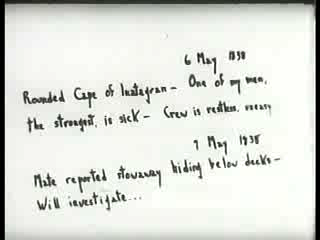 6 May 1838
Rounded Cape of Instagran – One of my men,
the strongest, is sick – Crew is restless, uneasy
7 May 1838
Mate reported stowaway hiding below decks –
Will investigate...